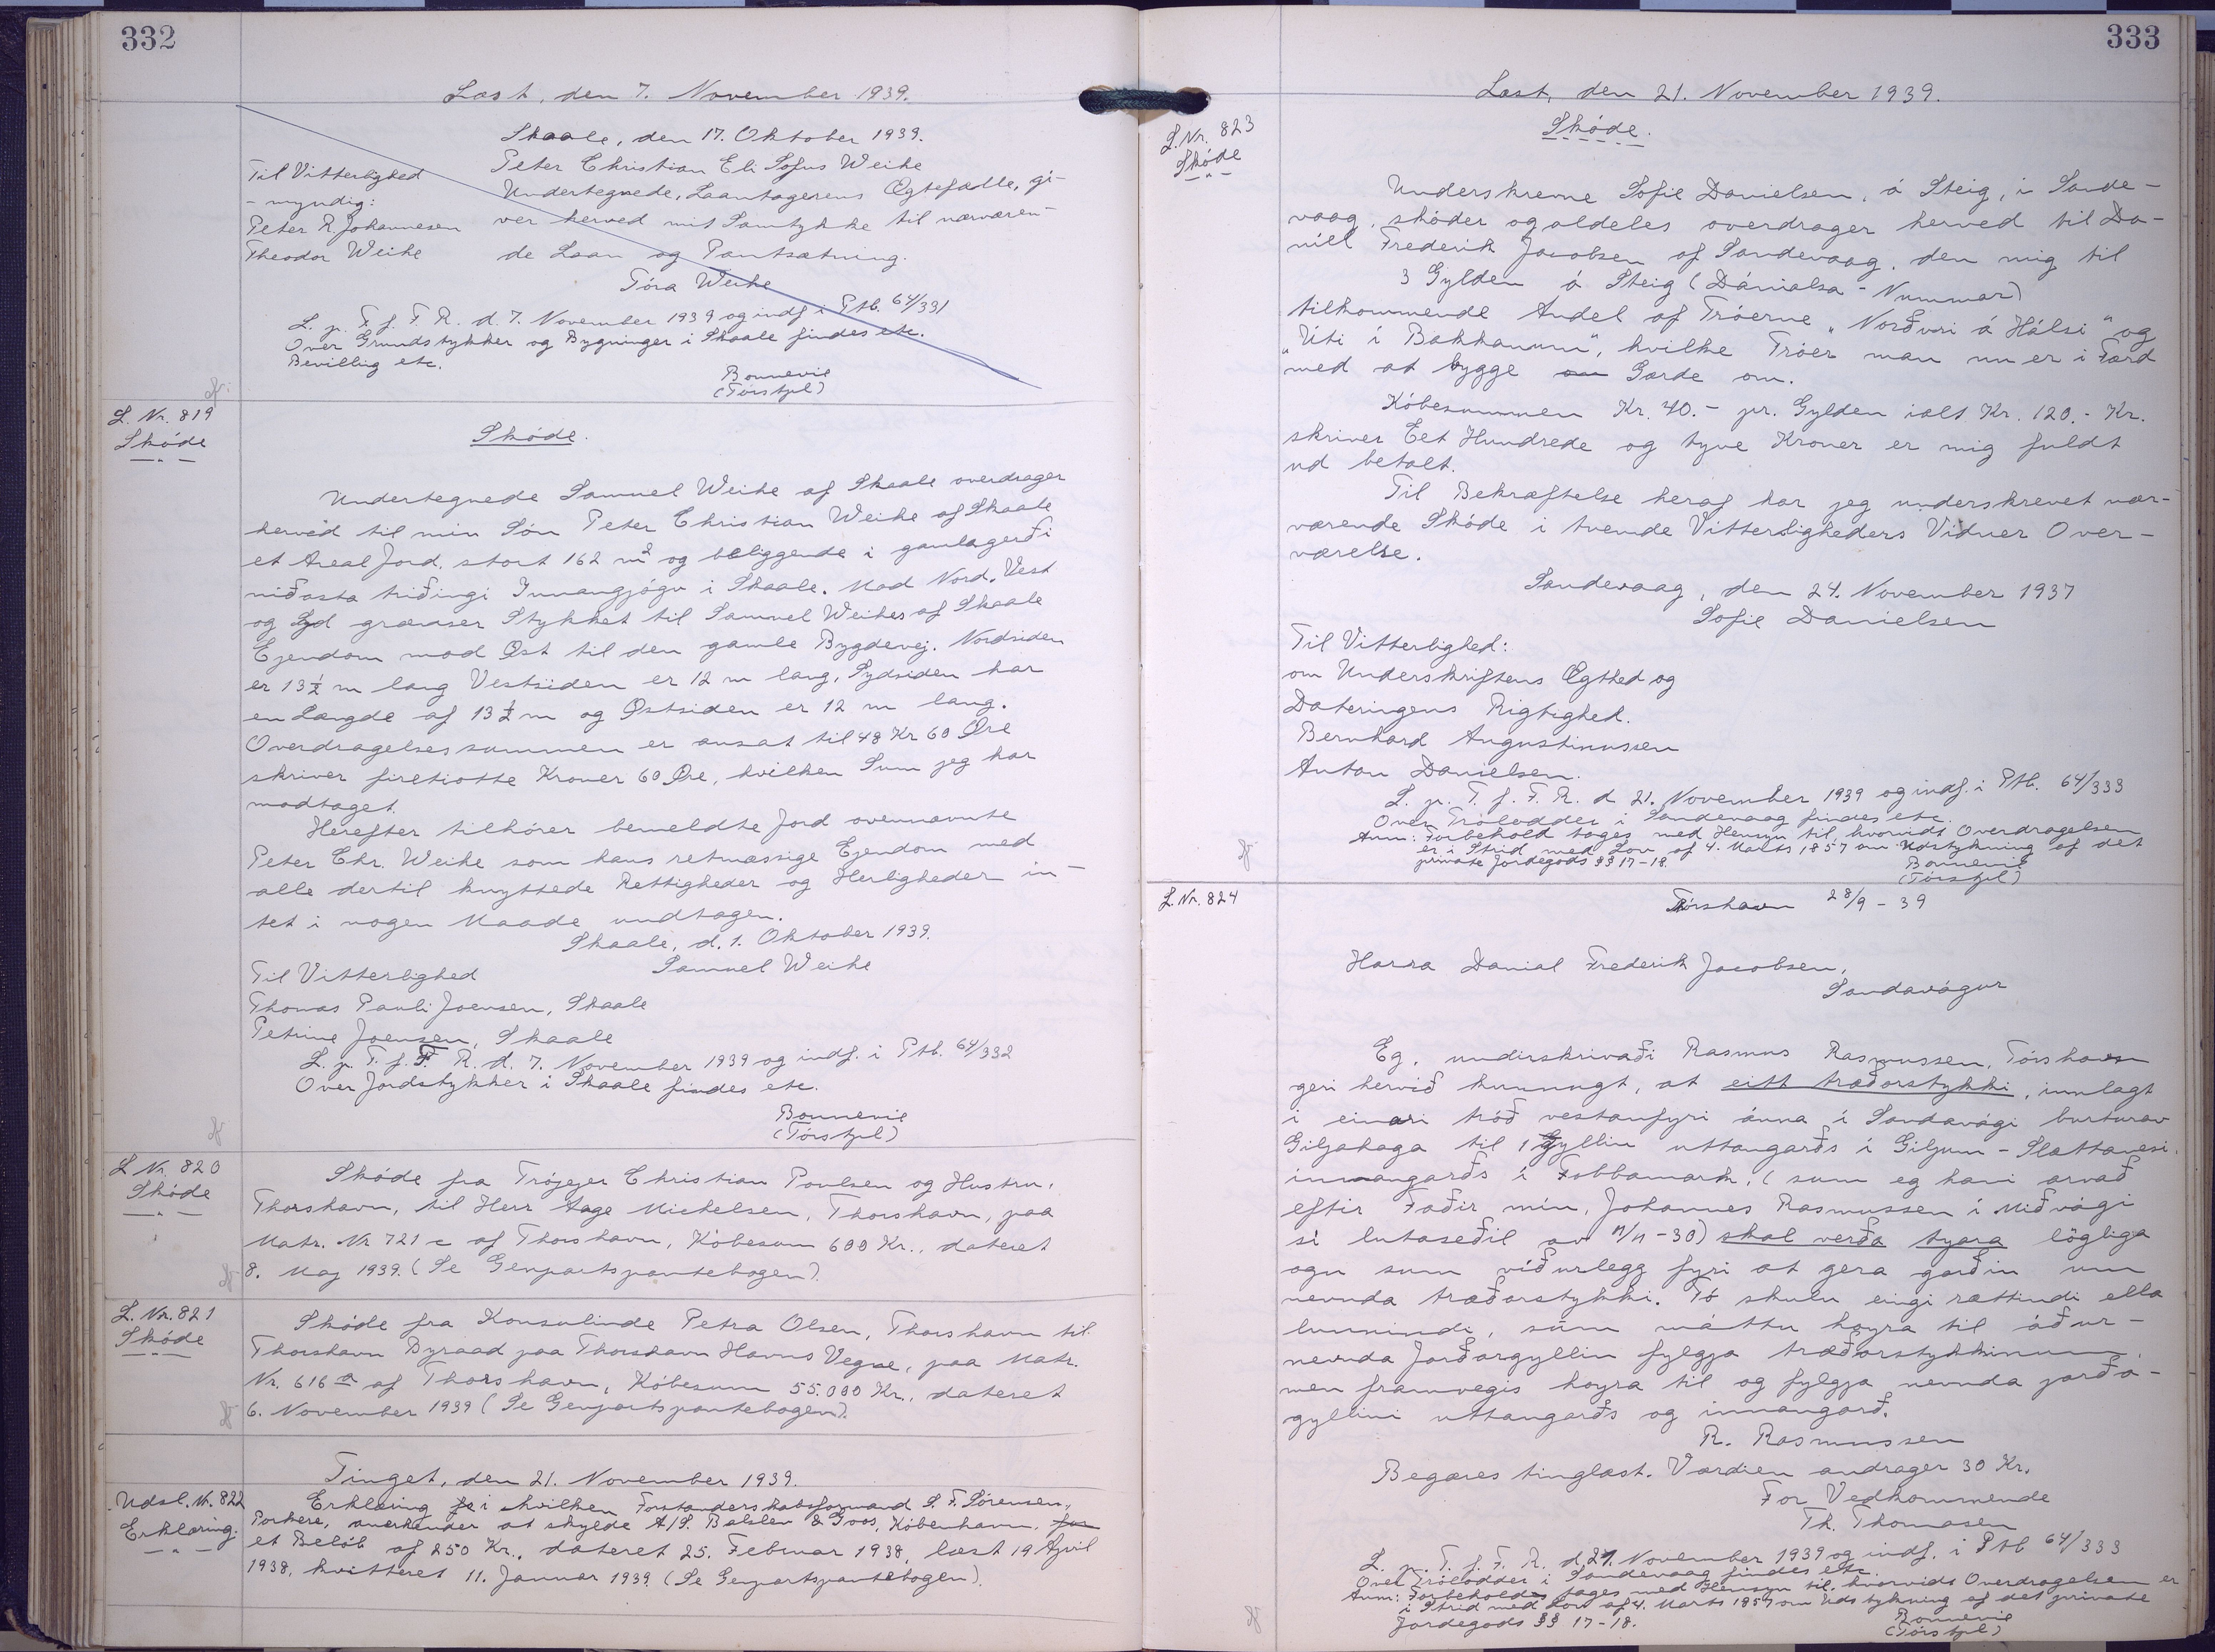 332
Læst, den 7. November 1939.
Skaale, den 17. Oktober 1939.
Til Vitterlighed
- myndig:
Peter R. Johannesen
Theodor Weihe
Peter Christian Eli Sofus Weihe
Undertegnede, Laantagerens Ægtefælle, gi-
ver herved mit Samtykke til nærværen-
de Laan og Pantsætning.
Tóra Weihe
L. p. T. f. F. R. d. 7. November 1939 og indf. i Ptb. 64/331
Over Grundstykker og Bygninger i Skaale findes etc.
Bevilling etc.
Bonnevie
(Tórstjl)
L. Nr. 819
Skóde
Skóde.
Undertegnede Samuel Weihe af Skaale overdrager
herved til min Són Peter Christian Weihe af Skaale
et Areal Jord, stort 162 m² og beliggende i gamlagerði
niðasta triðingi Innangjógv i Skaale. Mod Nord, Vest
og Syd grænser Stykket til Samuel Weihes af Skaale
Ejendom mod Øst til den gamle Bygdevej. Nordsiden
er 13½ m lang Vestsiden er 12 m lang, Sydsiden har
en Længde af 13½ m og Østsiden er 12 m lang.
Overdragelsessummen er ansat til 48 Kr 60 Øre
skriver firetiotte Kroner 60 Øre, hvilken Sum jeg har
modtaget.
Herefter tilhórer bemeldte Jord ovennævnte
Peter Chr. Weihe som hans retmæssige Ejendom med
alle dertil knyttede Rettigheder og Herligheder in-
tet i nogen Maade undtagen.
Skaale, d. 1. Oktober 1939.
Samuel Weihe
Til Vitterlighed
Thomas Pauli Joensen, Skaale
Petrine Joensen, Skaale
L. p. T. f. F. R. d. 7. November 1939 og indf. i Ptb. 64/332
Over Jordstykker i Skaale findes etc.
Bonnevie
(Tórstjl)
L Nr. 820
Skóde
Skóde fra Trójejer Christian Poulsen og Hustru,
Thorshavn, til Herr Aage Michelsen, Thorshavn, paa
Matr. Nr 721 c af Thorshavn, Kóbesum 600 Kr., dateret
8. Maj 1939. (Se Genpartspantebogen).
L. Nr. 821
Skóde
Skóde fra Konsulinde Petra Olsen, Thorshavn til
Thorshavn Byraad paa Thorshavn Havns Vegne, paa Matr.
Nr. 616 a af Thorshavn, Kóbesum 55.000 Kr., dateret
6. November 1939 (Se Genpartspantebogen).
Tinget, den 21. November 1939.
Udsl. Nr. 822
Erklæring.
Erklæring i hvilken Forstanderskabsformand S. F. Sórensen,
Porkere, anerkender at skylde A/S. Balslev & Goos, Kóbenhavn, for
et Belób af 250 Kr., dateret 25. Februar 1938, læst 19 April
1938, kvitteret 11. Januar 1939. (Se Genpartspantebogen).
333
Læst, den 21. November 1939.
L. Nr. 823
Skóde
Skóde.
Underskrevne Sofie Danielsen, á Steig, i Sande-
vaag, skóder og aldeles overdrager herved til Da-
niel Frederik Jacobsen af Sandevaag, den mig til
3 Gylden á Steig (Dánialsa-Nummar)
tilkommende Andel af Tróerne "Norðuri á Hálsi" og
"Úti í Bakkanum", hvilke Tróer man nu er i Færd
med at bygge om Gærde om.
Kóbesummen Kr. 40.- pr. Gylden ialt Kr. 120.- Kr.
skriver Eet Hundrede og tyve Kroner er mig fuldt
ud betalt.
Til Bekræftelse heraf har jeg underskrevet nær-
værende Skóde i tvende Vitterligheders Vidner Over-
værelse.
Sandevaag, den 24. November 1937
Sofie Danielsen
Til Vitterlighed:
om Underskriftens Ægthed og
Dateringens Rigtighed.
Bernhard Augustinussen
Anton Danielsen.
L. p. T. f. F. R. d 21. November 1939 og indf. i Ptb. 64/333
Over Trólodder i Sandevaag findes etc.
Anm: Forbehold tages med Hensyn til, hvorvidt Overdragelsen
er i Strid med Lov af 4. Marts 1857 om Udstykning af det
private Jordegods §§ 17-18
Bonnevie
(Tórstjl)
L. Nr. 824
Tórshavn 28/9 - 39
Harra Danial Frederik Jacobsen,
Sandavágur
Eg, undirskrivaði Rasmus Rasmussen, Tórshavn
geri hervið kunnugt, at eitt træðarstykki, innlagt
i einari tróð vestanfyri ánna í Sandavági burturav
Giljahaga til 1 Gyllin uttangarðs í Giljum - Slættanesi,
innangarðs í Fobbamark, (sum eg havi arvað
eftir Faðir mín, Johannes Rasmussen í Miðvági
sí lutaseðil av 11/11 - 30) skal verða tygara lógliga
ogn sum viðurlegg fyri at gera garðin um
nevnda træðarstykki. Tó skulu eingi rættindi ella
lunnindi, sum máttu hoyra til áður-
nevnda Jarðargyllin fylgja træðarstykkinum,
men framvegis hoyra til og fylgja nevnda jarða-
gyllini uttangarðs og innangarð.
R. Rasmussen
Begæres tinglæst. Værdien andrager 30 Kr.
For Vedkommende
Th. Thomasen
L. p. T. f. F. R. d. 21. November 1939 og indf. i Ptb 64/333
Over Trólodder i Sandevaag findes etc.
Anm: Forbeholdes tages med Hensyn til, hvorvidt Overdragelsen er
i Strid med Lov af 4. Marts 1857 om Udstykning af det private
Jordegods §§ 17-18.
Bonnevie
(Tórstjl)